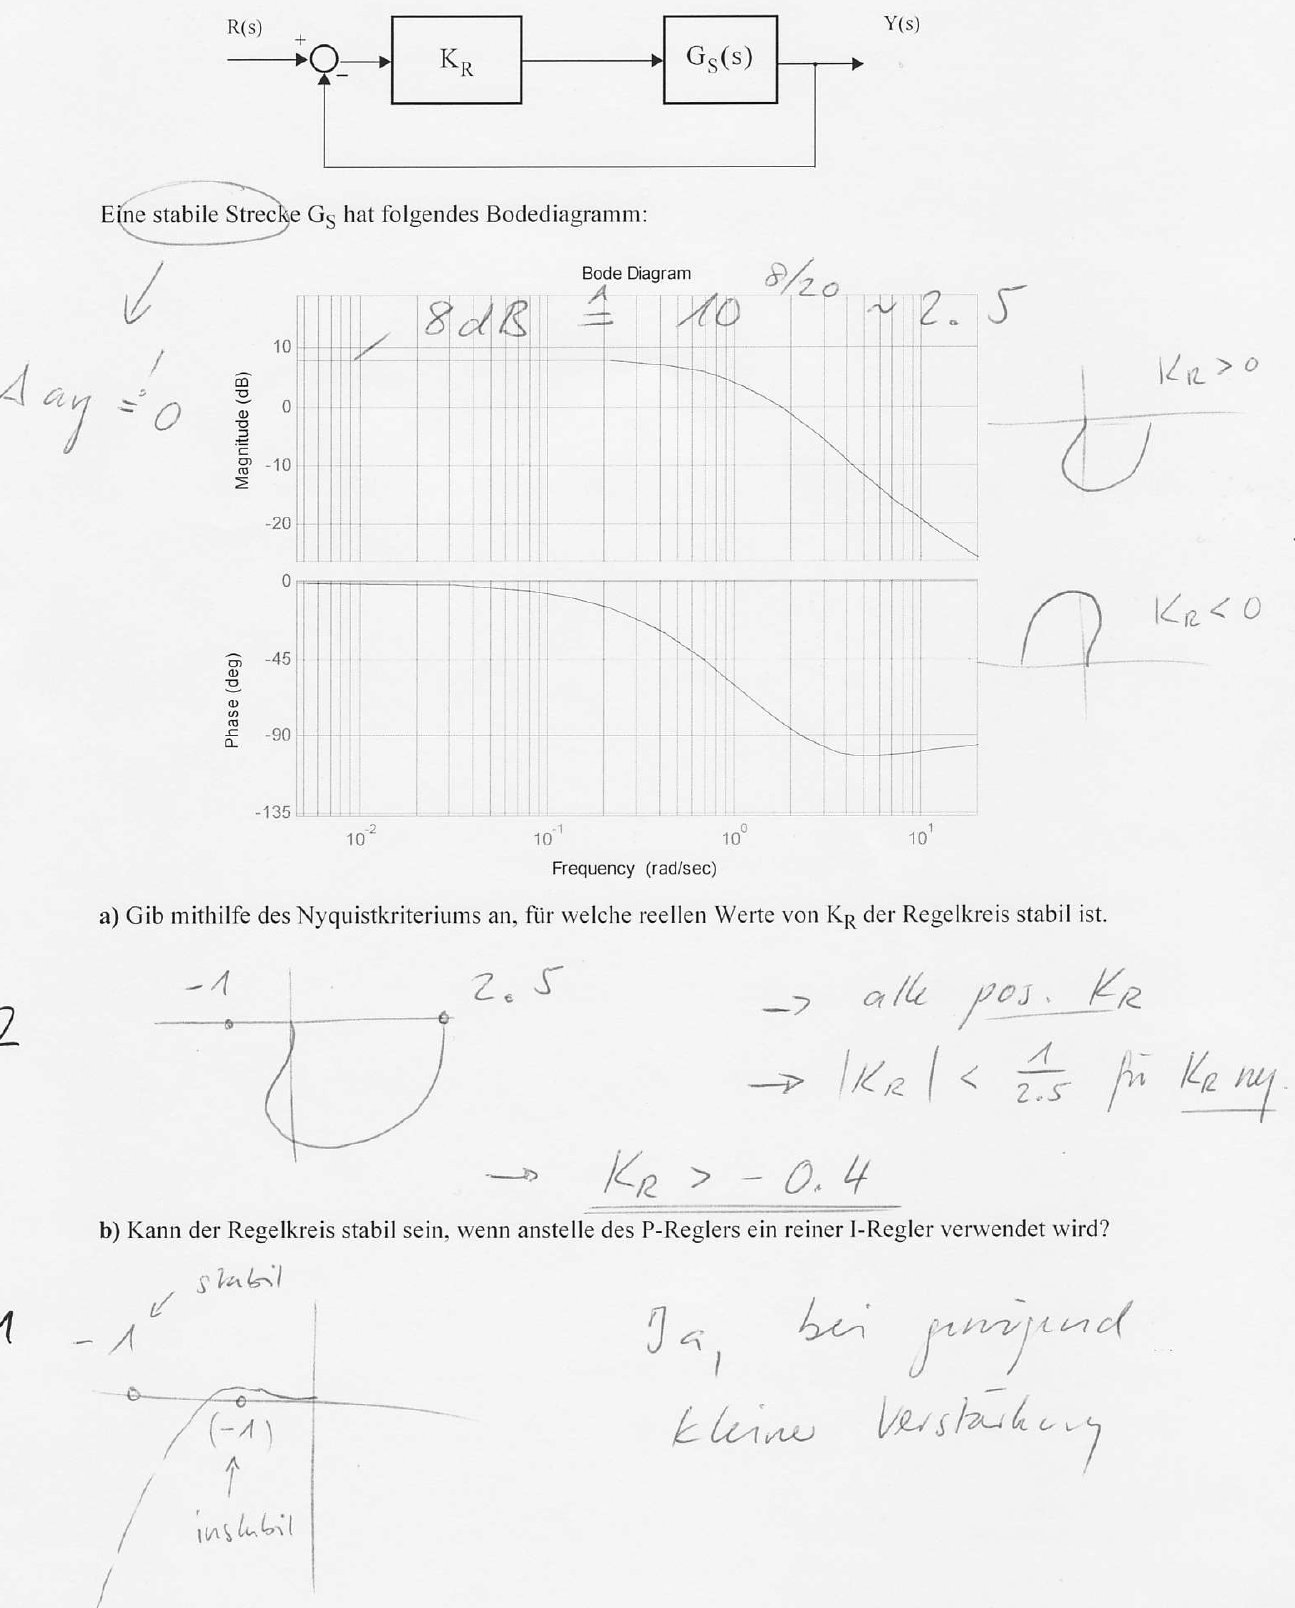 R(s)
Y(s)
+
K_R
G_S(s)
−
Eine stabile Strecke G_S hat folgendes Bodediagramm:
Bode Diagram
8 dB ≙ 10^8/20 ~ 2.5
Δ arg =! 0
Magnitude (dB)
10
0
-10
-20
K_R > 0
K_R < 0
Phase (deg)
0
-45
-90
-135
10^-2
10^-1
10^0
10^1
Frequency (rad/sec)
a) Gib mithilfe des Nyquistkriteriums an, für welche reellen Werte von K_R der Regelkreis stabil ist.
-1
2.5
→ alle pos. K_R
2
→ |K_R| < 1/2.5 für K_R neg.
→ K_R > -0.4
b) Kann der Regelkreis stabil sein, wenn anstelle des P-Reglers ein reiner I-Regler verwendet wird?
stabil
1
-1
Ja, bei genügend
kleiner Verstärkung
(-1)
instabil